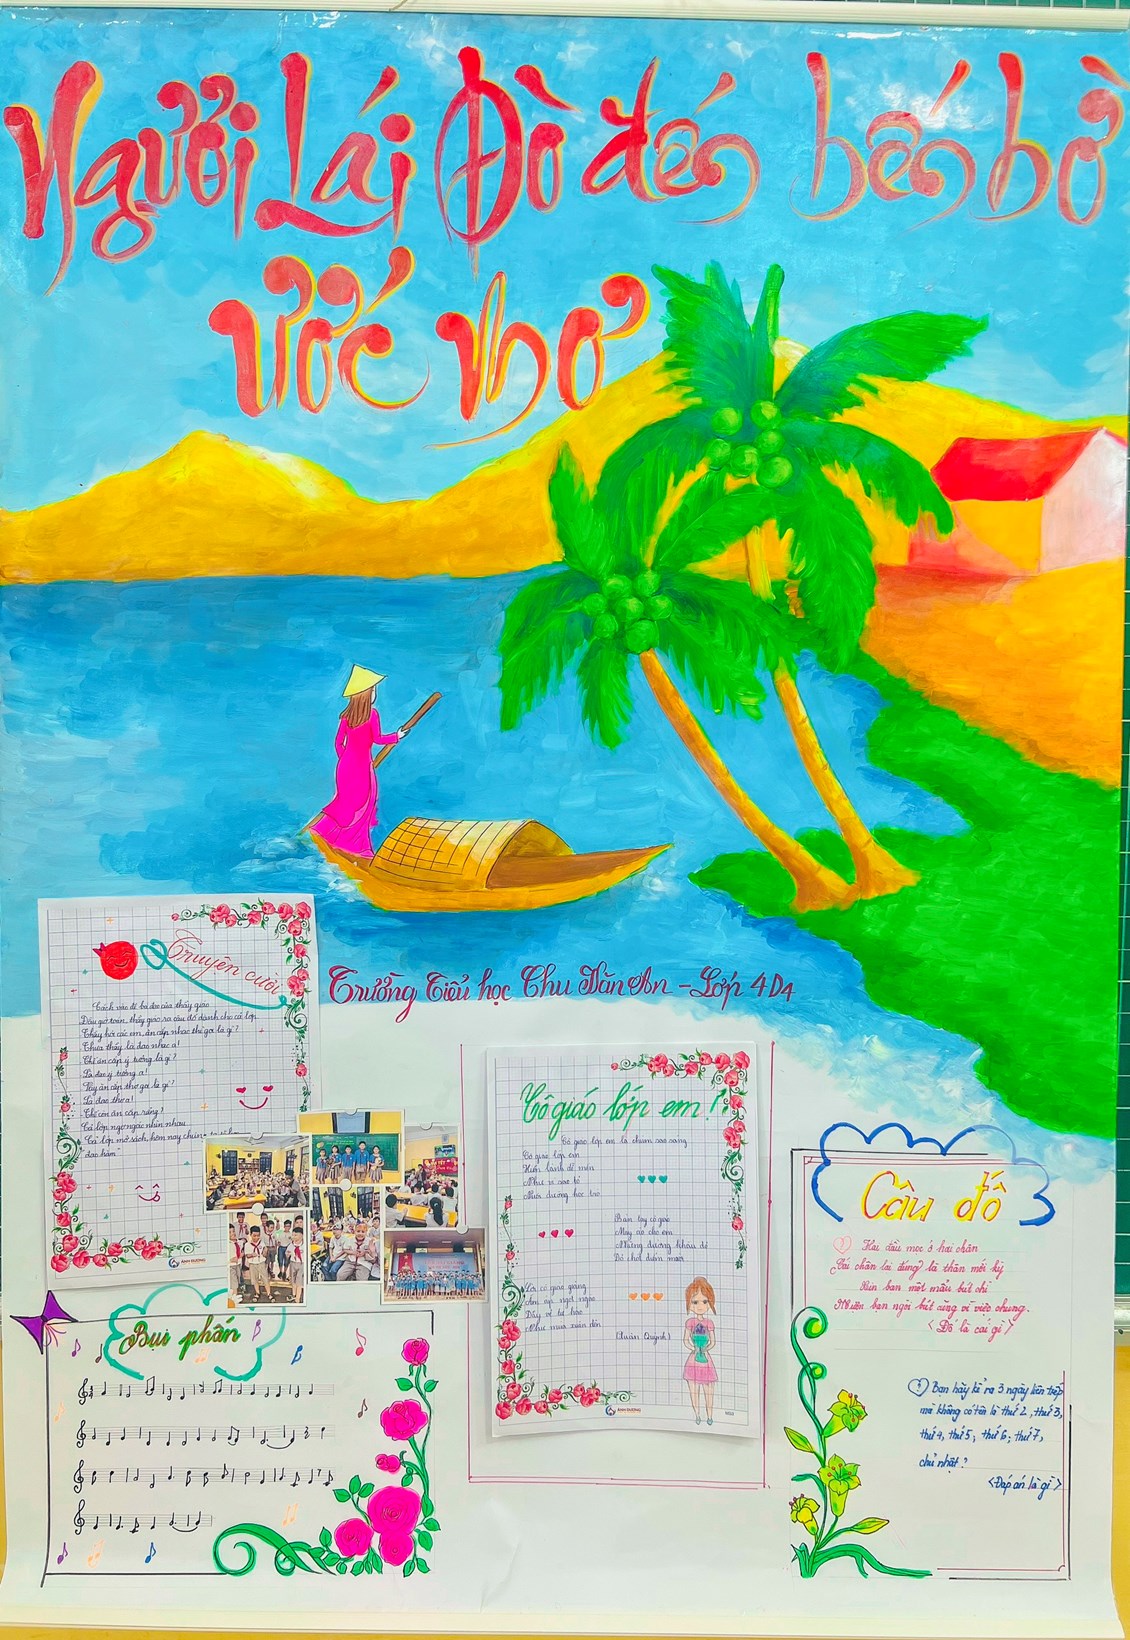 Người Lái Đò đến bến bờ
ước mơ
Trường Tiểu học Chu Văn An - Lớp 4D4
Truyện cười
Cách nào để bị đọc của thầy giáo
Đầu giờ toán, thầy giáo ra câu đố dành cho cả lớp
Thầy hỏi các em, ăn cắp nhạc thì gọi là gì?
Thưa thầy là đạo nhạc ạ!
Thế ăn cắp ý tưởng là gì?
Là đạo ý tưởng ạ!
Vậy ăn cắp thơ gọi là gì?
Là đạo thơ ạ!
Thế còn ăn cắp răng?
Cả lớp ngơ ngác nhìn nhau
"Cả lớp mở sách, hôm nay chúng ta
đạo hàm"
ÁNH DƯƠNG
Cô giáo lớp em!
Cô giáo lớp em là chùm sao sáng
Cô giáo lớp em
Hiền lành dễ mến
Như vì sao tỏ
Nuôi dưỡng học trò
Bàn tay cô giáo
Bỏ chợt điểm mười
Dạy vẽ tự học
Như mưa xuân đến
(Xuân Quỳnh)
ÁNH DƯƠNG
Bụi phấn
Câu đố
Hai đầu mọc ở hai chân
Cái chân lại đúng là thân mới kỳ
Xin bạn một mẩu bút chì
Miễn bạn ngòi bút cùng vì việc chung.
<Đố là cái gì>
Bạn hãy kể ra 3 ngày liên tiếp
mà không có tên là thứ 2, thứ 3,
thứ 4, thứ 5; thứ 6; thứ 7,
chủ nhật?
<Đáp án là gì>